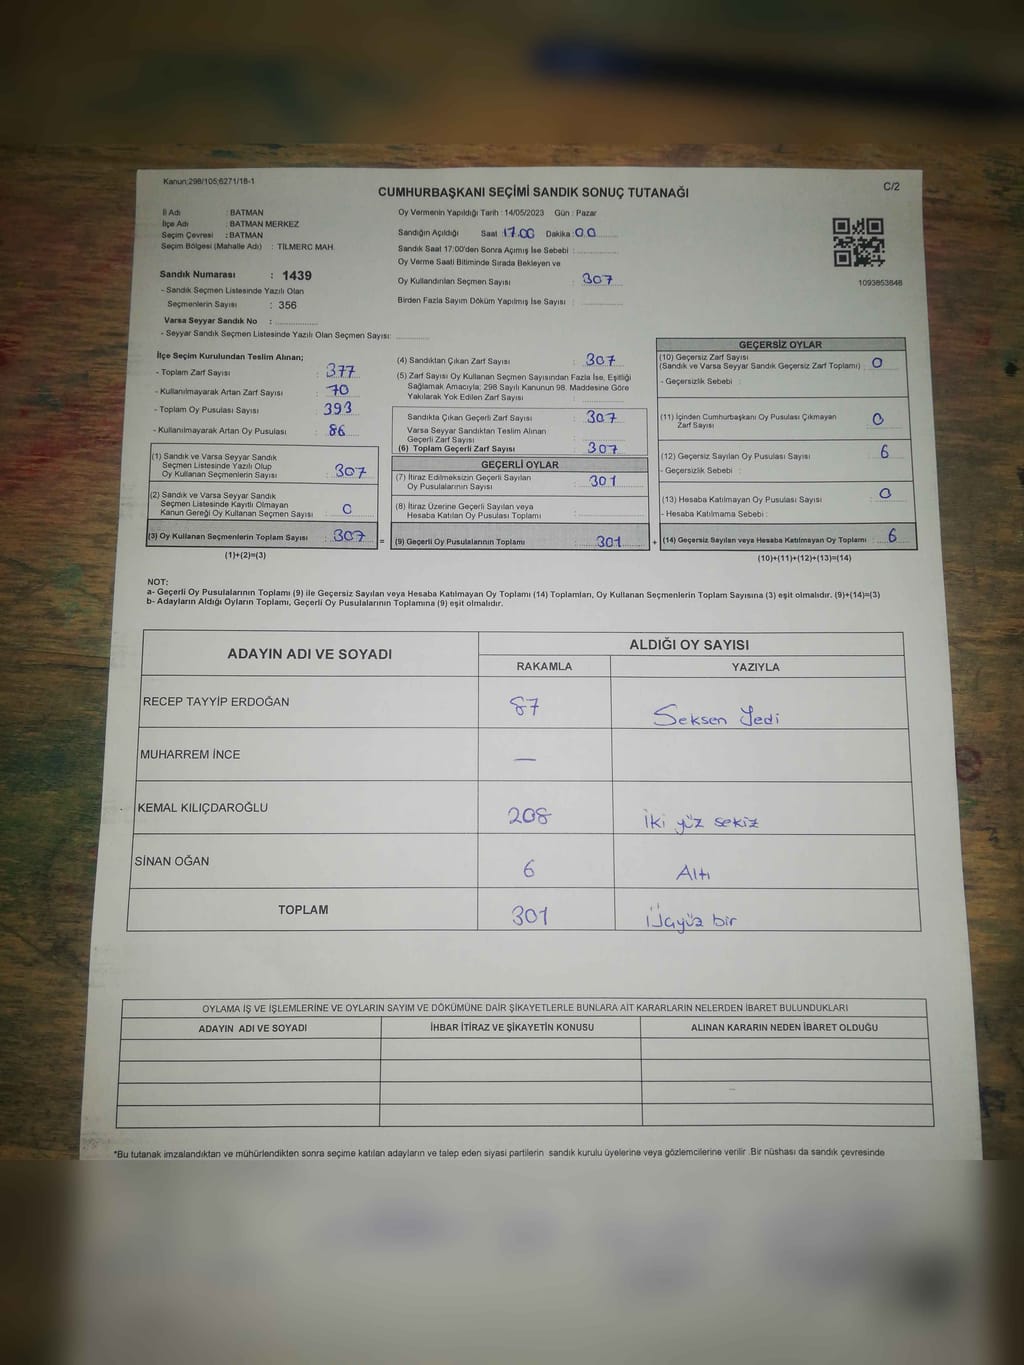 Kanun:298/105;6271/18-1
C/2
CUMHURBAŞKANI SEÇİMİ SANDIK SONUÇ TUTANAĞI
İl Adı : BATMAN
İlçe Adı : BATMAN MERKEZ
Seçim Çevresi : BATMAN
Seçim Bölgesi (Mahalle Adı) : TİLMERC MAH.
Sandık Numarası : 1439
- Sandık Seçmen Listesinde Yazılı Olan
Seçmenlerin Sayısı : 356
Varsa Seyyar Sandık No :
- Seyyar Sandık Seçmen Listesinde Yazılı Olan Seçmen Sayısı:
Oy Vermenin Yapıldığı Tarih : 14/05/2023 Gün : Pazar
Sandığın Açıldığı Saat : 17.00 Dakika : 00
Sandık Saat 17:00'den Sonra Açımış İse Sebebi :
Oy Verme Saati Bitiminde Sırada Bekleyen ve
Oy Kullandırılan Seçmen Sayısı : 307
Birden Fazla Sayım Döküm Yapılmış İse Sayısı :
1093853848
İlçe Seçim Kurulundan Teslim Alınan;
- Toplam Zarf Sayısı : 377
- Kullanılmayarak Artan Zarf Sayısı : 70
- Toplam Oy Pusulası Sayısı : 393
- Kullanılmayarak Artan Oy Pusulası : 86
(1) Sandık ve Varsa Seyyar Sandık
Seçmen Listesinde Yazılı Olup
Oy Kullanan Seçmenlerin Sayısı : 307
(2) Sandık ve Varsa Seyyar Sandık
Seçmen Listesinde Kayıtlı Olmayan
Kanun Gereği Oy Kullanan Seçmen Sayısı : 0
(3) Oy Kullanan Seçmenlerin Toplam Sayısı : 307
(1)+(2)=(3)
=
(4) Sandıktan Çıkan Zarf Sayısı : 307
(5) Zarf Sayısı Oy Kullanan Seçmen Sayısından Fazla İse, Eşitliği
Sağlamak Amacıyla; 298 Sayılı Kanunun 98. Maddesine Göre
Yakılarak Yok Edilen Zarf Sayısı :
Sandıkta Çıkan Geçerli Zarf Sayısı : 307
Varsa Seyyar Sandıktan Teslim Alınan
Geçerli Zarf Sayısı :
(6) Toplam Geçerli Zarf Sayısı : 307
GEÇERLİ OYLAR
(7) İtiraz Edilmeksizin Geçerli Sayılan
Oy Pusulalarının Sayısı : 301
(8) İtiraz Üzerine Geçerli Sayılan veya
Hesaba Katılan Oy Pusulası Toplamı :
(9) Geçerli Oy Pusulalarının Toplamı : 301
+
GEÇERSİZ OYLAR
(10) Geçersiz Zarf Sayısı
(Sandık ve Varsa Seyyar Sandık Geçersiz Zarf Toplamı) : 0
- Geçersizlik Sebebi :
(11) İçinden Cumhurbaşkanı Oy Pusulası Çıkmayan
Zarf Sayısı : 0
(12) Geçersiz Sayılan Oy Pusulası Sayısı : 6
- Geçersizlik Sebebi :
(13) Hesaba Katılmayan Oy Pusulası Sayısı : 0
- Hesaba Katılmama Sebebi :
(14) Geçersiz Sayılan veya Hesaba Katılmayan Oy Toplamı : 6
(10)+(11)+(12)+(13)=(14)
NOT:
a- Geçerli Oy Pusulalarının Toplamı (9) ile Geçersiz Sayılan veya Hesaba Katılmayan Oy Toplamı (14) Toplamları, Oy Kullanan Seçmenlerin Toplam Sayısına (3) eşit olmalıdır. (9)+(14)=(3)
b- Adayların Aldığı Oyların Toplamı, Geçerli Oy Pusulalarının Toplamına (9) eşit olmalıdır.
ADAYIN ADI VE SOYADI ALDIĞI OY SAYISI
RAKAMLA YAZIYLA
RECEP TAYYİP ERDOĞAN 87 Seksen Yedi
MUHARREM İNCE —
KEMAL KILIÇDAROĞLU 208 İki yüz sekiz
SİNAN OĞAN 6 Altı
TOPLAM 301 Üçyüz bir
OYLAMA İŞ VE İŞLEMLERİNE VE OYLARIN SAYIM VE DÖKÜMÜNE DAİR ŞİKAYETLERLE BUNLARA AİT KARARLARIN NELERDEN İBARET BULUNDUKLARI
ADAYIN ADI VE SOYADI İHBAR İTİRAZ VE ŞİKAYETİN KONUSU ALINAN KARARIN NEDEN İBARET OLDUĞU
*Bu tutanak imzalandıktan ve mühürlendikten sonra seçime katılan adayların ve talep eden siyasi partilerin sandık kurulu üyelerine veya gözlemcilerine verilir .Bir nüshası da sandık çevresinde